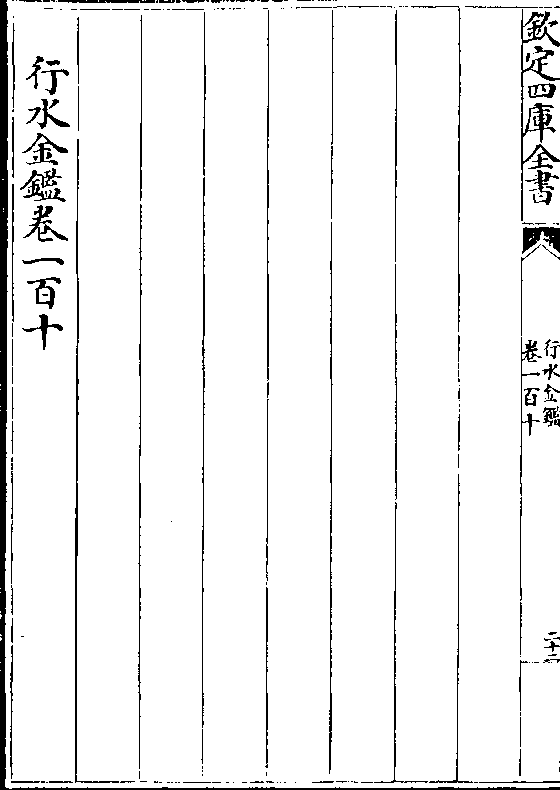 欽定四庫全書
行水金鑑
卷一百十
二十二
行水金鑑卷一百十